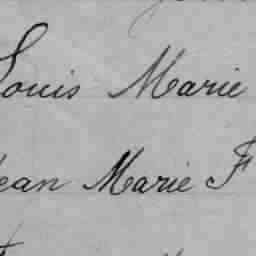 Louis Marie
Jean Marie F